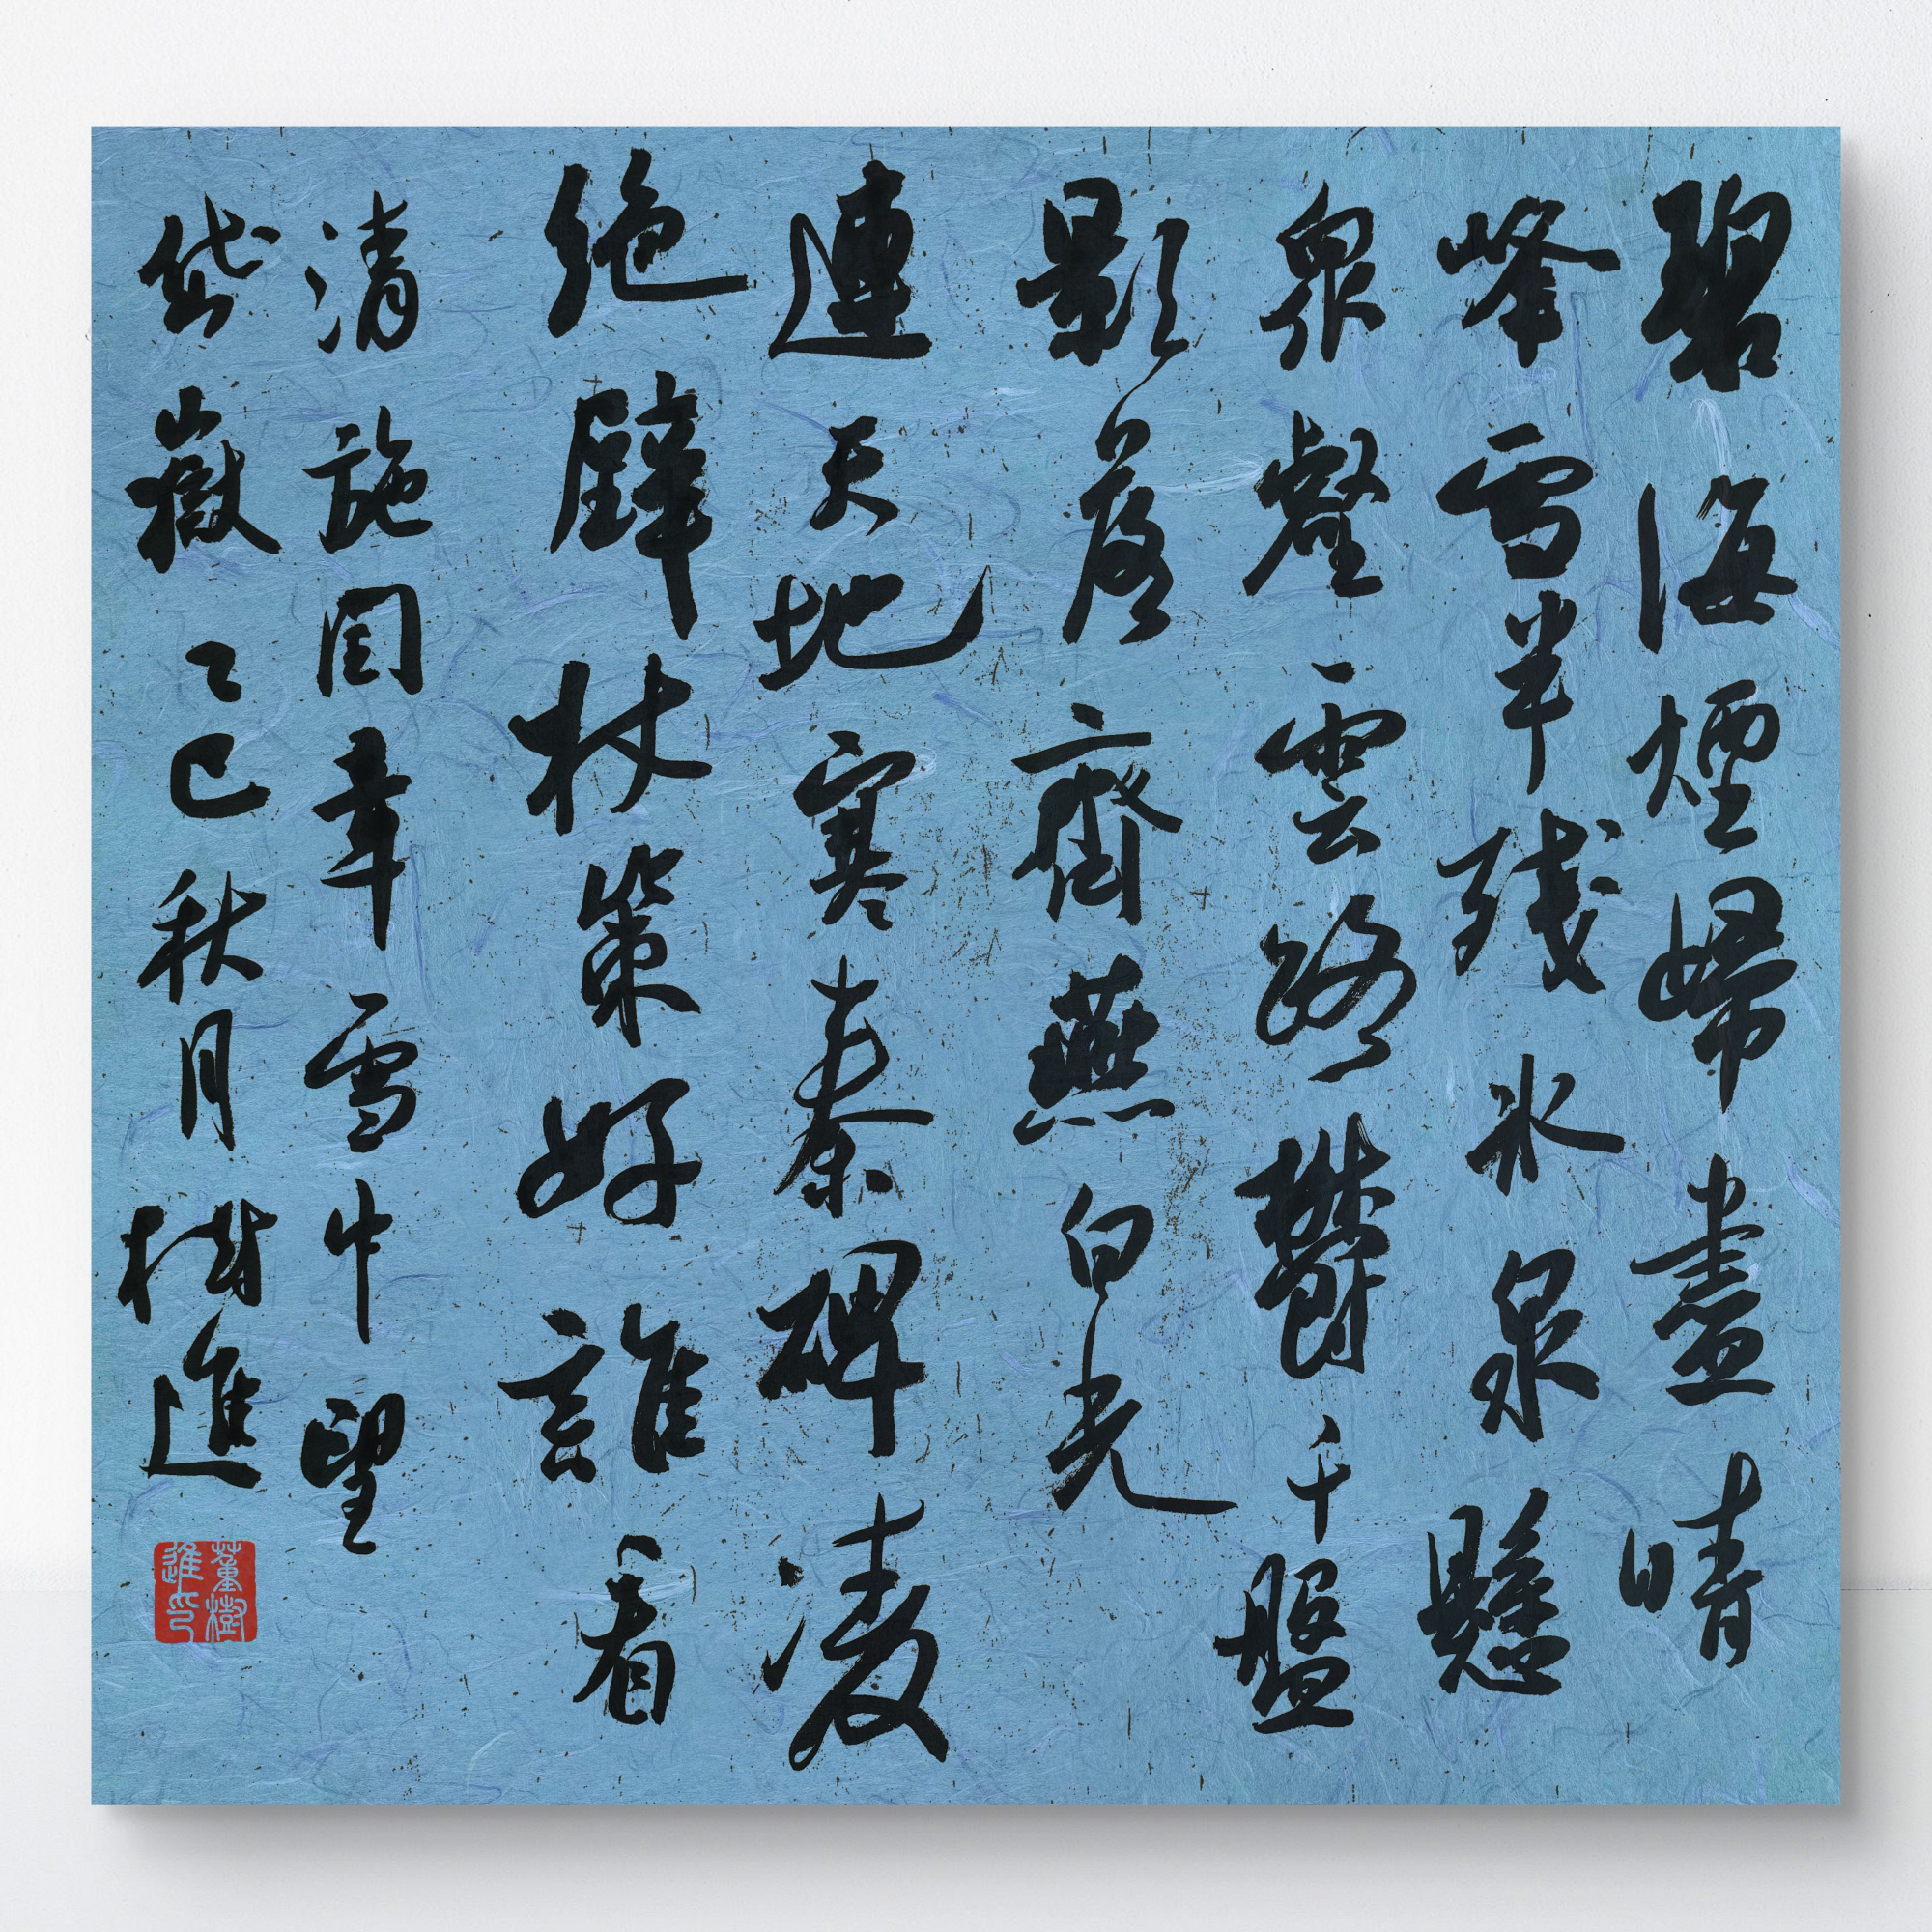 碧海煙歸盡晴
峰雪半残冰泉懸
衆壑雲路鬱千盤
影落齊燕白光
連天地寒秦碑凌
絕壁杖策好誰看
清施閏章雪中望
岱嶽乙巳秋月樹進
董樹進印